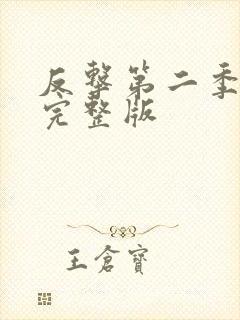 反擊第二季
完整版
王倉寶